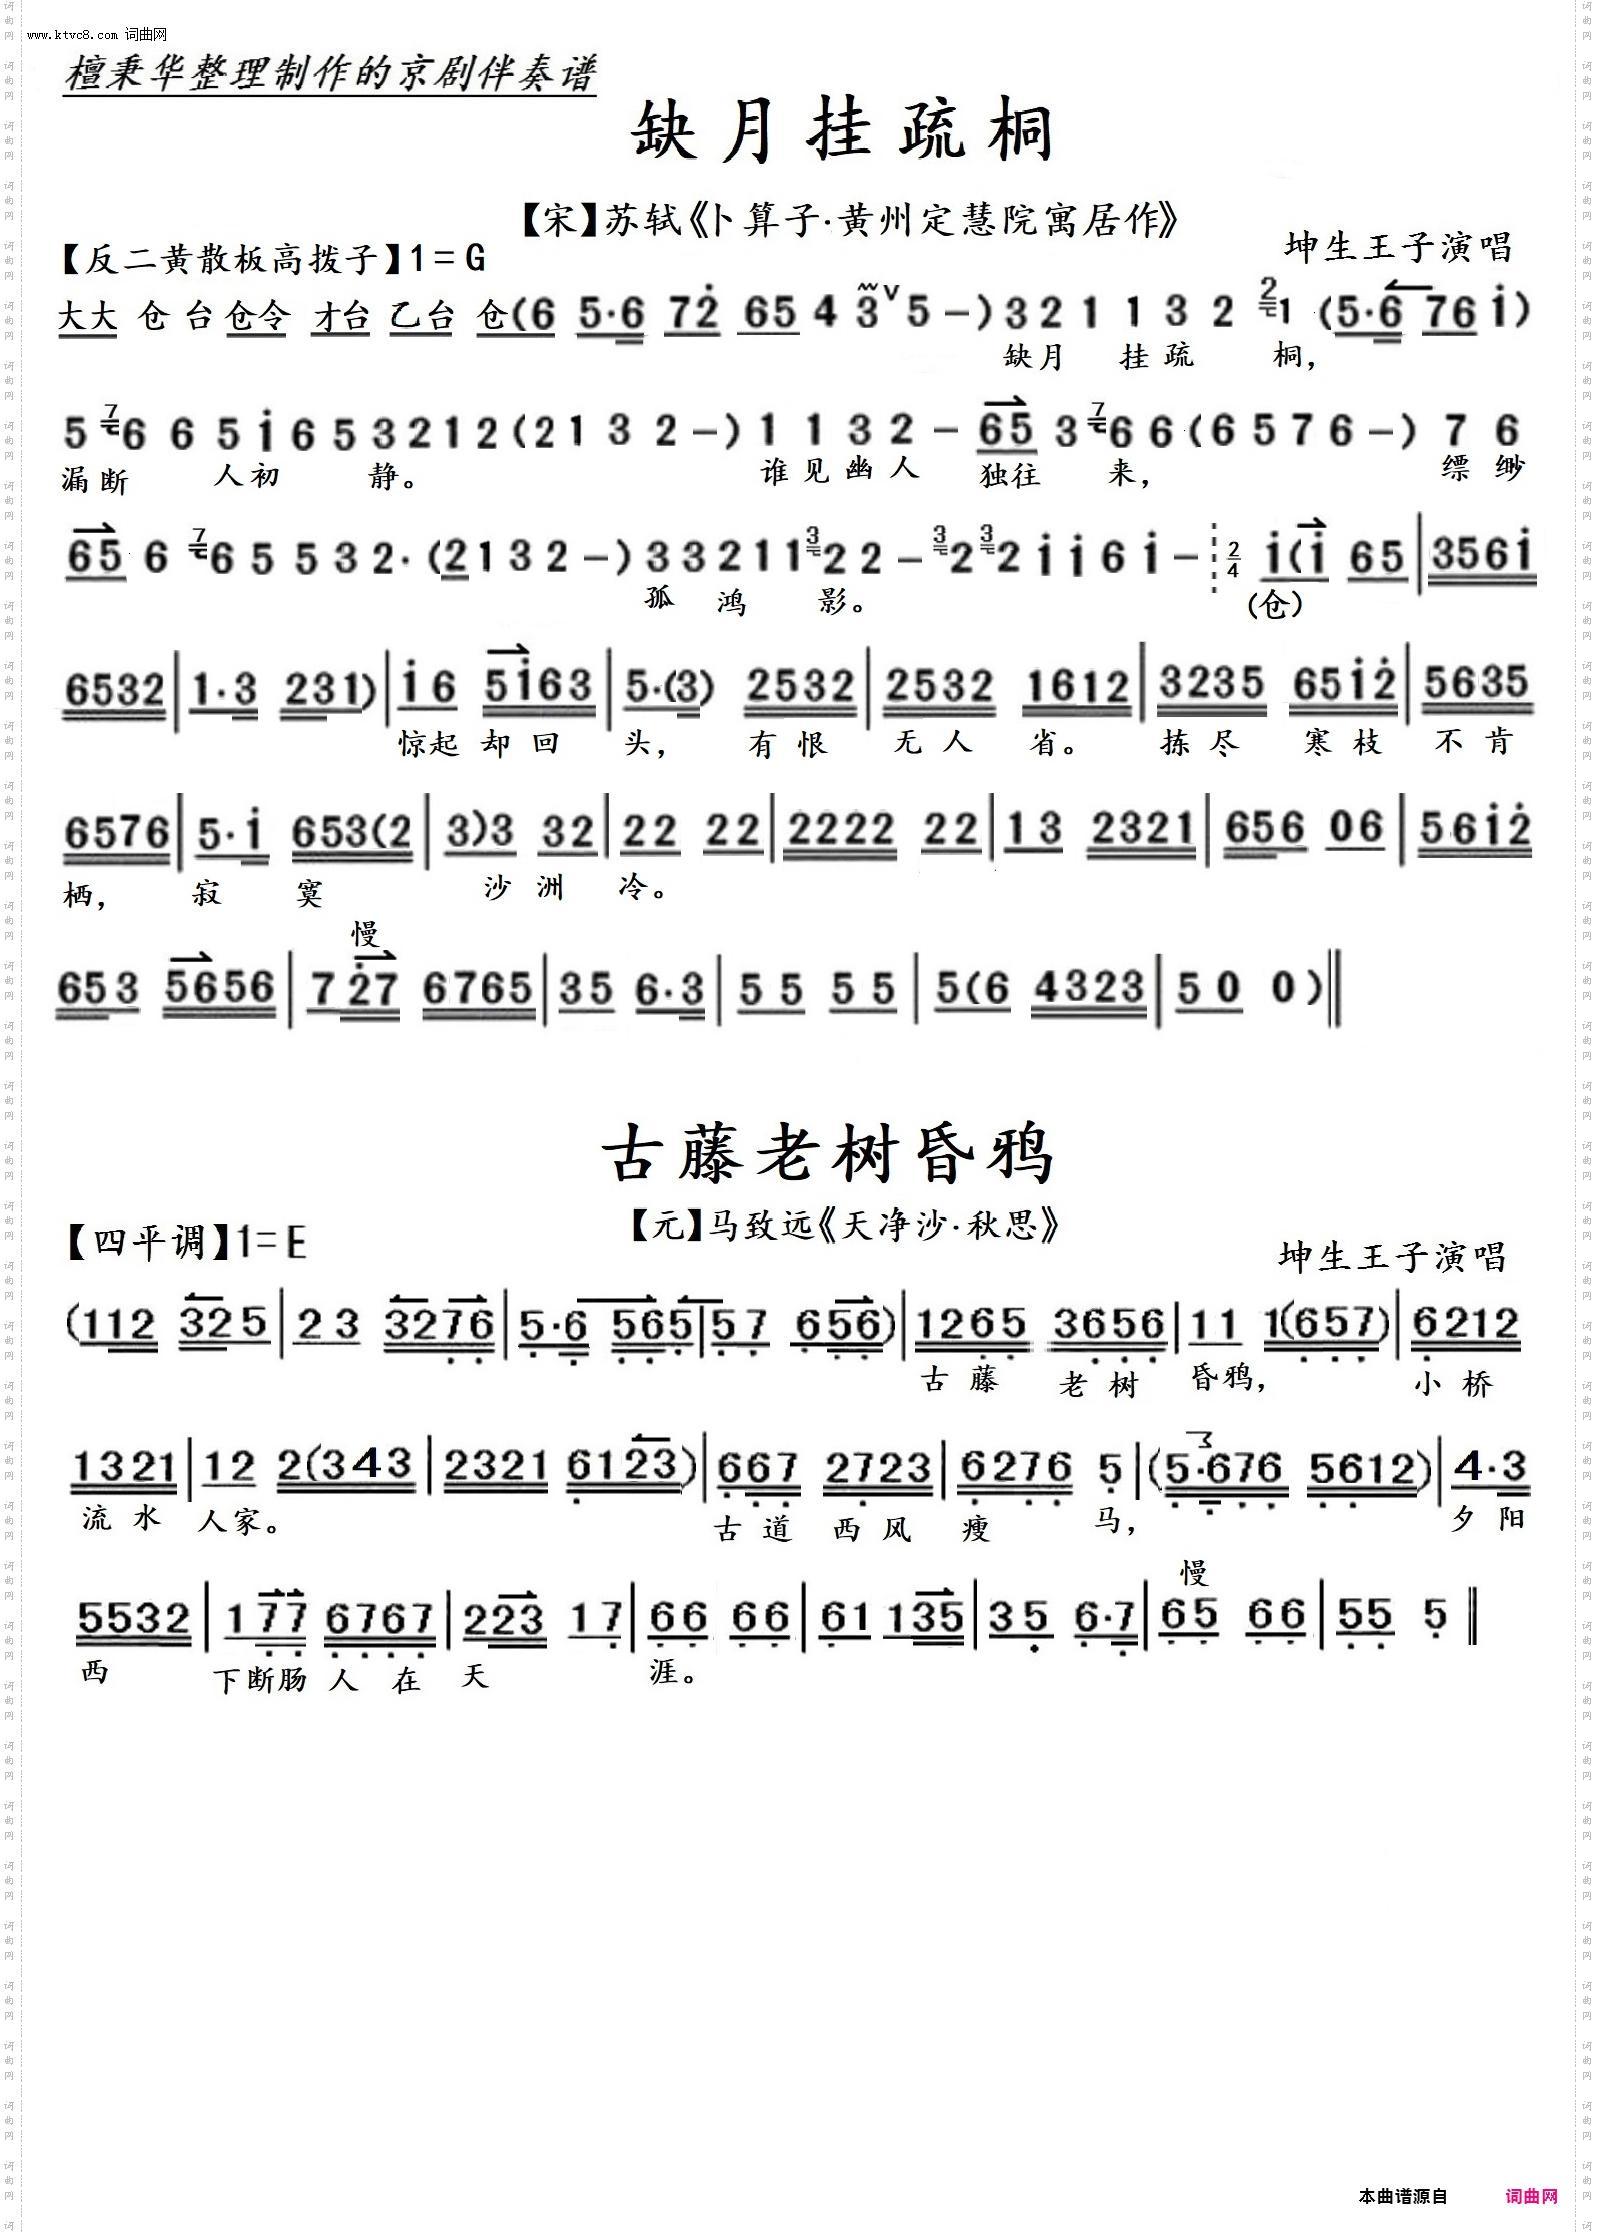 www.ktvc8.com 词曲网
檀秉华整理制作的京剧伴奏谱
缺月挂疏桐
【宋】苏轼《卜算子·黄州定慧院寓居作》
【反二黄散板高拨子】1=G 坤生王子演唱
大大 仓 台 仓令 才台 乙台 仓(6 5·6 72 65 4 3 V 5 -) 3 2 1 1 3 2 2 1 (5·6 76 i)
缺月 挂疏 桐，
5 7 6 6 5 i 6 5 3 2 1 2 (2 1 3 2 -) 1 1 3 2 - 65 3 7 6 6 (6 5 7 6 -) 7 6
漏断 人初 静。 谁见幽人 独往 来， 缥缈
65 6 7 6 5 5 3 2· (2 1 3 2 -) 3 3 2 1 1 3 2 2 - 3 2 3 2 i i 6 i - 2/4 i(i 65 | 3561
孤 鸿 影。 (仓)
6532 | 1·3 231) | i6 5i63 | 5·(3) 2532 | 2532 1612 | 3235 65i2 | 5635
惊起 却回 头， 有恨 无人 省。 拣尽 寒枝 不肯
6576 | 5·i 653(2 | 3)3 32 | 22 22 | 2222 22 | 13 2321 | 656 06 | 56i2
栖， 寂 寞 沙洲 冷。
慢
653 5656 | 7 27 6765 | 35 6·3 | 55 55 | 5(6 4323 | 50 0)‖
古藤老树昏鸦
【元】马致远《天净沙·秋思》
【四平调】1=E 坤生王子演唱
(112 325 | 23 3276 | 5·6 565 | 57 656) | 1265 3656 | 11 1(657) | 6212
古藤 老树 昏鸦， 小桥
1321 | 12 2(343 | 2321 6123) | 667 2723 | 6276 5 | (5·676 5612) | 4·3
流水 人家。 古道 西风 瘦 马， 夕阳
慢
5532 | 177 6767 | 223 17 | 66 66 | 61 135 | 35 6·7 | 65 66 | 55 5‖
西 下断肠 人 在 天 涯。
本曲谱源自 词曲网